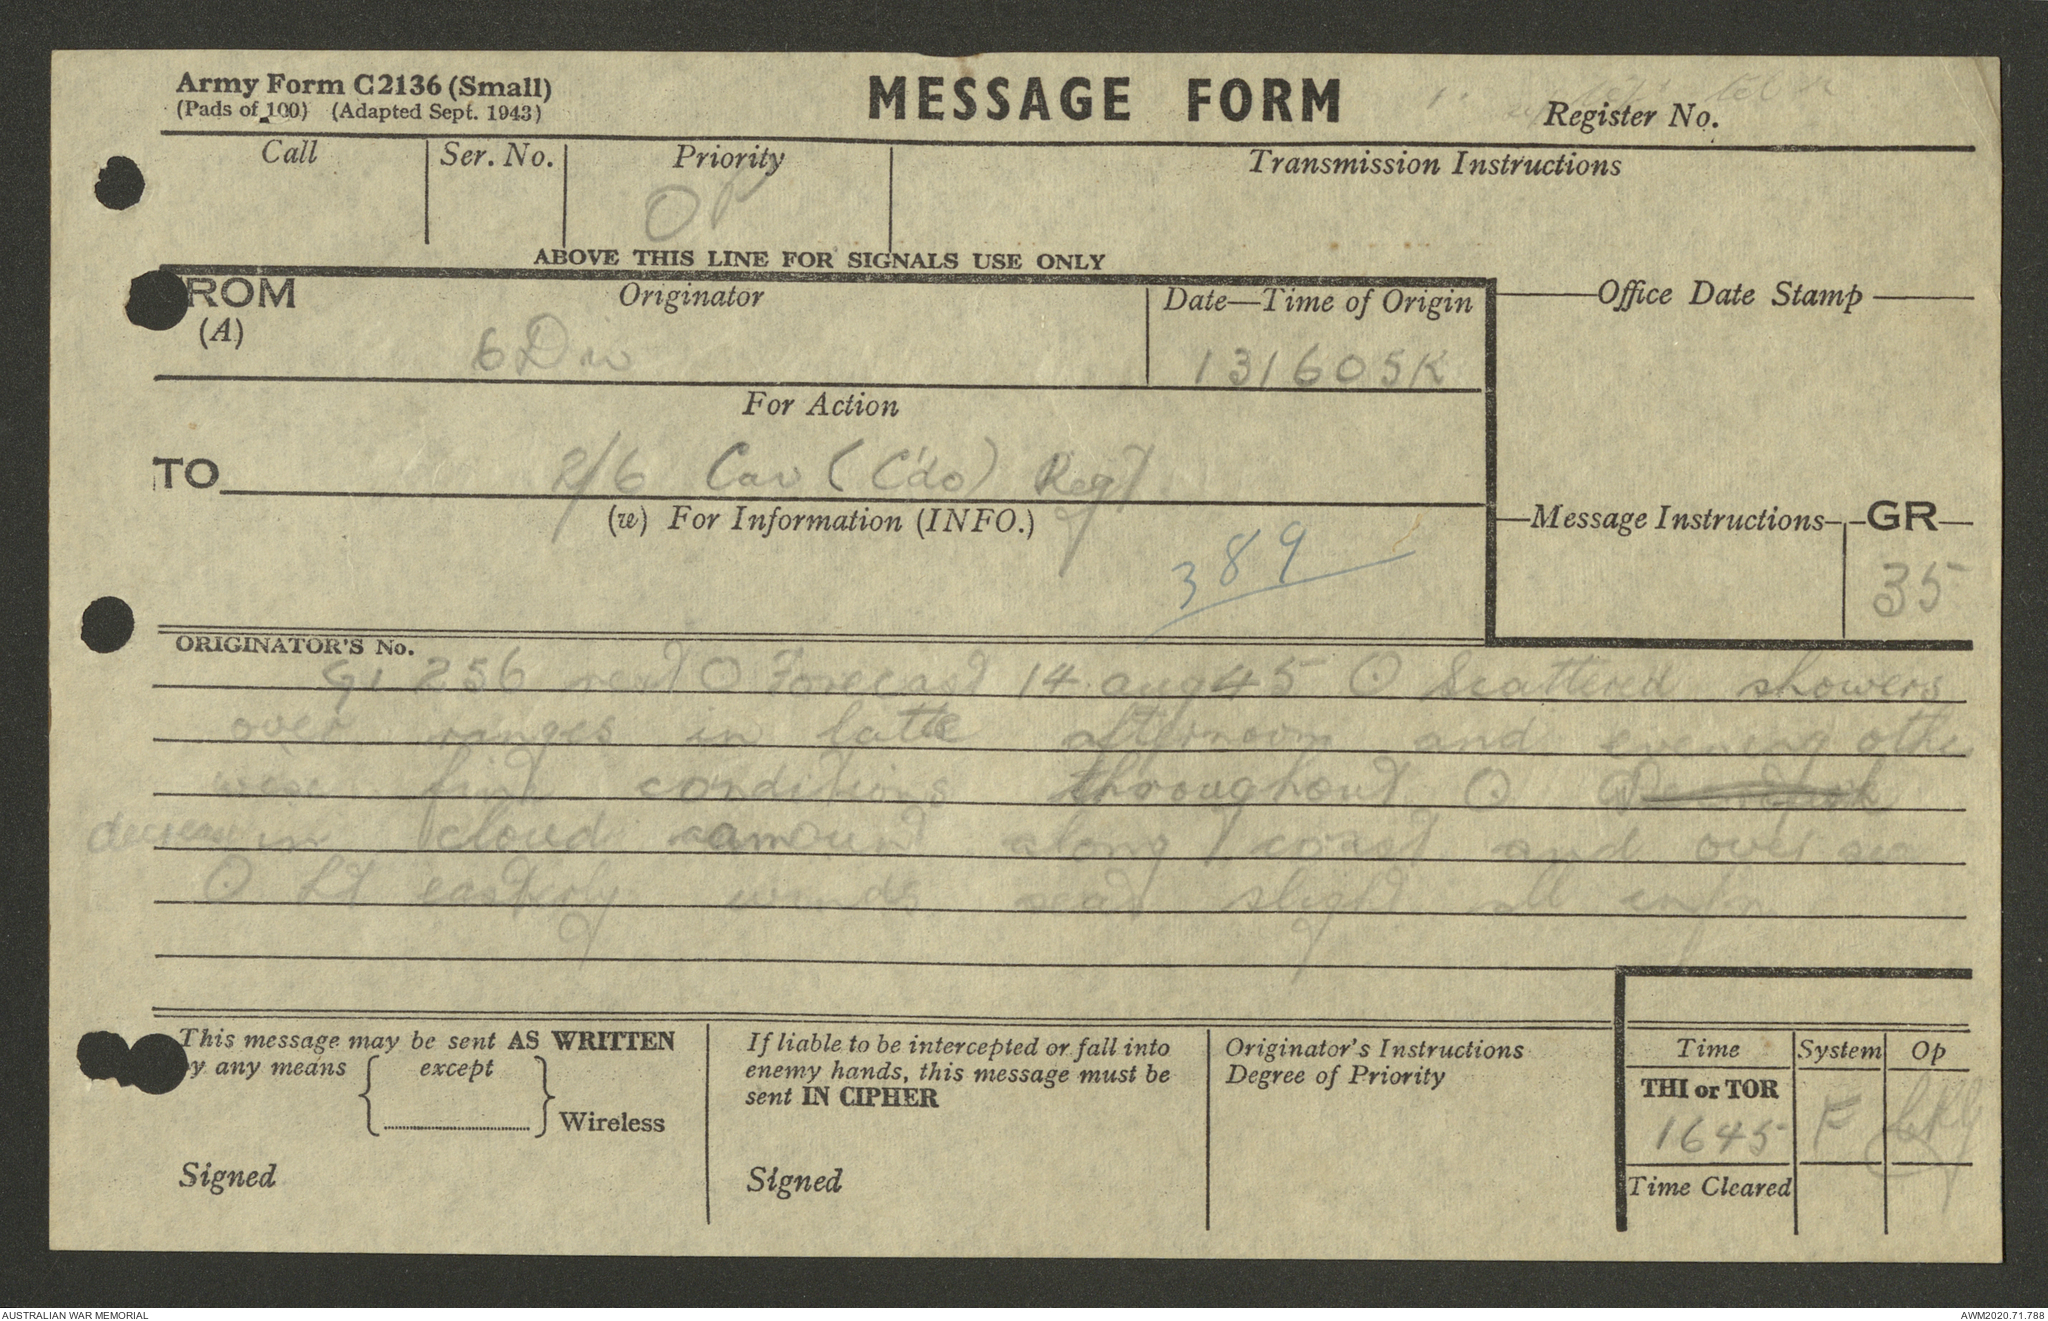 Army Form C2136 (Small)
(Pads of 100) (Adapted Sept. 1943)
MESSAGE FORM
Register No.
Call
Ser. No.
Priority
OP
Transmission Instructions
ABOVE THIS LINE FOR SIGNALS USE ONLY
ROM
(A)
Originator
6 Div
Date—Time of Origin
131605K
Office Date Stamp
For Action
TO
2/6 Cav (C'do) Regt
(w) For Information (INFO.)
389
Message Instructions
GR
35
ORIGINATOR'S No.
G1 256 rest O Forecast 14 aug 45 O Scattered showers
over ranges in late afternoon and evening othe
wise fine conditions throughout O
decrease in cloud amount along coast and over sea
O Lt easterly winds seas slight all infm
This message may be sent AS WRITTEN
y any means { except } Wireless
Signed
If liable to be intercepted or fall into
enemy hands, this message must be
sent IN CIPHER
Signed
Originator's Instructions
Degree of Priority
Time
System
Op
THI or TOR
1645
F
Time Cleared
AUSTRALIAN WAR MEMORIAL
AWM2020.71.788